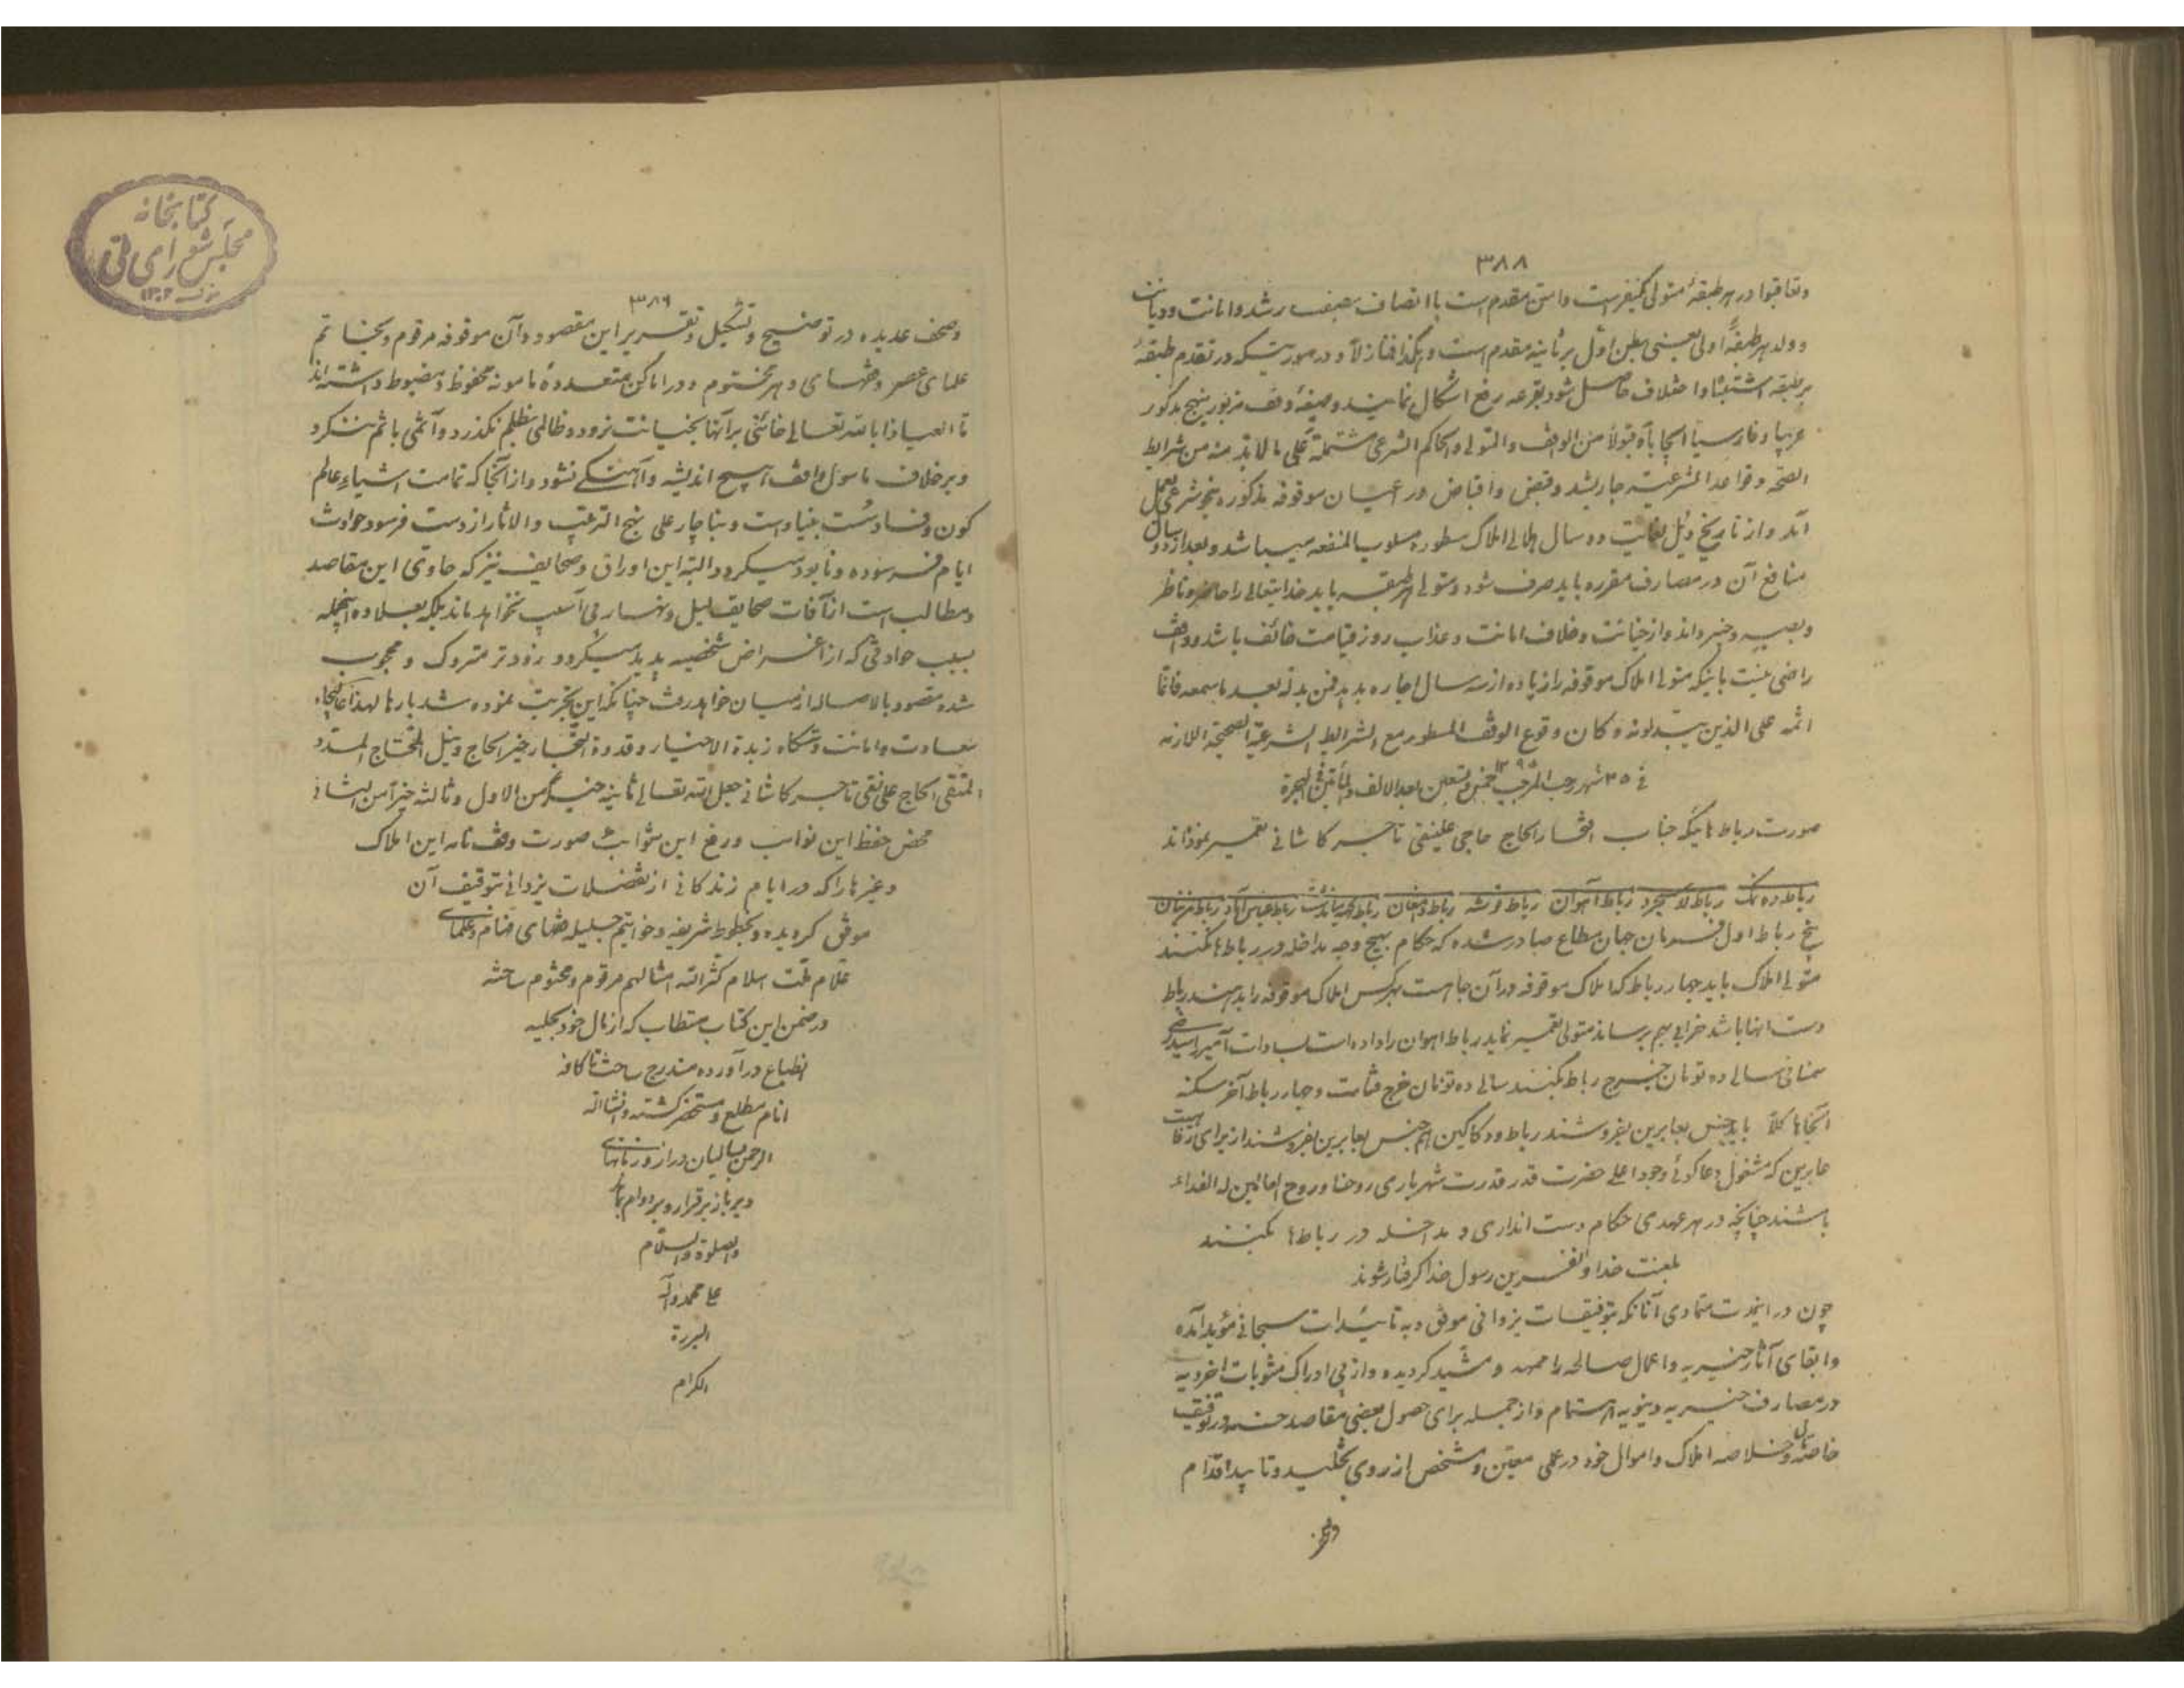 ۳۸۸
وتعاقبوا در هر طبقهٔ متولی یکنفر است واسن مقدم است با اتصاف بصفت رشد وامانت ودیانت
وولد هر طبقهٔ اولی یعنی بطن اول بر ثانیه مقدم است وهکذا فنازلاً ودر صورتیکه در تقدم طبقهٔ
بر طبقه اشتباه واختلاف حاصل شود بقرعه رفع اشکال نمایند وصیغهٔ وقف مزبور بنهج مذکور
عربیاً وفارسیاً ایجاباً وقبولاً من الواقف والمتولی والحاکم الشرعی مشتملة علی مالابد منه من شرایط
الصحة وقواعد الشرعیه جاریشد وقبض واقباض در اعیان موقوفه مذکوره بنحو شرعی بعمل
آمد واز تاریخ ذیل لغایت ده سال هلالی املاک مسطوره مسلوب المنفعه میباشد وبعد از ده سال
منافع آن در مصارف مقرره باید صرف شود ومتولی هر طبقه باید خدایتعالی را حاضر وناظر
وبصیر وخبیر داند واز خیانت وخلاف امانت وعذاب روز قیامت خائف باشد وواقف
راضی نیست باینکه متولی املاک موقوفه را زیاده از سه سال اجاره بدهد فمن بدله بعد ما سمعه فانما
اثمه علی الذین یبدلونه وکان وقوع الوقف المسطور مع الشرایط الشرعیة الصحیحة اللازمه
فی ۲۵ شهر رجب المرجب ۱۲۹۵ خمس وتسعین بعد الالف والمأتین من الهجرة
صورت رباط هائیکه جناب افتخار الحاج حاجی علینقی تاجر کاشانی تعمیر نموده‌اند
رباط ده نمک رباط لاسجرد رباط آهوان رباط قوشه رباط دامغان رباط میاندشت رباط عباس آباد رباط مزینان
پنج رباط اول فرمان جهان مطاع صادر شده که حکام بهیچ وجه مداخله در رباط ها نکنند
متولی املاک باید چهار رباط که املاک موقوفه در آن جا است بهر کس املاک موقوفه را بدهند رباط
دست آنها باشد خرابی بهم برساند متولی تعمیر نماید رباط اهوان را داده است بسادات
سمنانی سالی ده تومان خرج رباط بکنند سالی ده تومان خرج قنات وچهار رباط آخر سکنه
آنجاها کلاً باید جنس بعابرین بفروشند رباط ودکاکین هم جنس بعابرین بفروشند از برای رفاهیت
عابرین که مشغول دعاگوئی وجود اعلی حضرت قدر قدرت شهریاری روحنا وروح العالمین له الفداء
باشند چنانچه در هر عهدی حکام دست اندازی ومداخله در رباط ها بکنند
بلعنت خدا ونفرین رسول خدا گرفتار شوند
چون در اینمدت متمادی آنانکه بتوفیقات یزدانی موفق وبه تأییدات سبحانی مؤید آمده
وابقای آثار خیریه واعمال صالحه را ممهد ومشید گردیده واز پی ادراک مثوبات اخرویه
در مصارف خیریه دینویه اهتمام واز جمله برای حصول بعضی مقاصد حسنه در توقیف
خاصه وخلاصه املاک واموال خود در محلی معین ومشخص از روی تخلید وتأبید اقدام
۳۸۹
وصحف عدیده در توضیح وتسجیل وتقریر این مقصود وآن موقوفه مرقوم وبخاتم
علمای عصر وفقهای دهر مختوم ودر اماکن متعدده مأمونه محفوظ ومضبوط داشته‌اند
تا العیاذ بالله تعالی خائنی بر آنها بخیانت نرود وظالمی بظلم نگذرد وآثمی باثم ننگرد
وبر خلاف مأمول واقف هیچ اندیشه وآهنگی نشود واز آنجا که تمامت اشیاء عالم
کون وفساد سست بنیاد است وبناچار علی نهج الترتیب والاثار از دست فرسود حوادث
ایام فرسوده ونابود میگردد البته این اوراق وصحایف نیز که حاوی این مقاصد
ومطالب است از آفات صحایف لیل ونهار بی آسیب نخواهد ماند بلکه بعلاوه اینجمله
بسبب حوادثی که از اغراض شخصیه پدید میگردد زودتر متروک ومحجوب
شده مقصود بالاصاله از میان خواهد رفت چنانکه این تجربت نموده شد بارها لهذا عالیجاه
سعادت وامانت دستگاه زبدة الاخیار وقدوة التجار خیر الحاج ونیل المحتاج المسدد
المتقی الحاج علی نقی تاجر کاشانی جعل الله تعالی ثانیه خیراً من الاول وثالثه خیراً من الثانی
محض حفظ این نوائب ورفع این شوائب صورت وقف نامه این املاک
وغیرها را که در ایام زندگانی از تفضلات یزدانی بتوقیف آن
موفق گردیده وبخطوط شریفه وخواتیم جلیله فقهای فخام وعلمای
علام ملت اسلام کثر الله امثالهم مرقوم ومختوم ساخته
در ضمن این کتاب مستطاب که از مال خود بحلیه
انطباع در آورده مندرج ساخت تا کافه
انام مطلع ومستحضر گشته وانشاالله
الرحمن سالیان دراز وزمانهای
دیر باز برقرار وبر دوام بماند
والصلوة والسلام
علی محمد وآله
البررة
الکرام
کتابخانه
مجلس شورای ملی